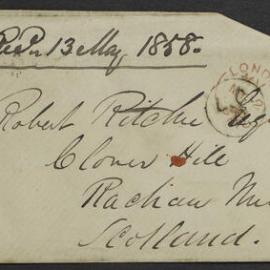 Recd. 13 May 1858.
LOND
Robert Ritchie
Clover Hill
Rachan
Scotland.